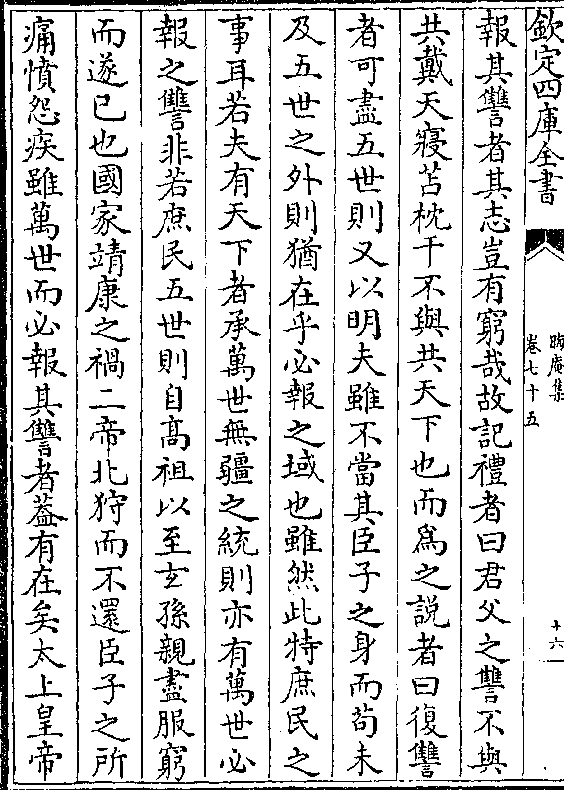 欽定四庫全書
晦庵集
卷七十五
十六
報其讐者其志豈有窮哉故記禮者曰君父之讐不與
共戴天寢苫枕干不與共天下也而爲之説者曰復讐
者可盡五世則又以明夫雖不當其臣子之身而苟未
及五世之外則猶在乎必報之域也雖然此特庶民之
事耳若夫有天下者承萬世無疆之統則亦有萬世必
報之讐非若庶民五世則自髙祖以至玄孫親盡服窮
而遂已也國家靖康之禍二帝北狩而不還臣子之所
痛憤怨疾雖萬世而必報其讐者葢有在矣太上皇帝